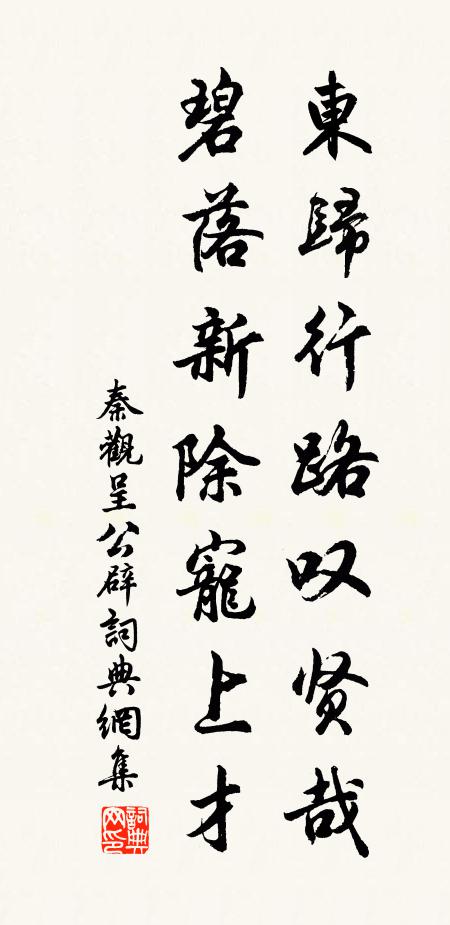 東歸行路叹贤哉
碧落新除寵上才
秦觀呈公辟詞典網集
詞典网印